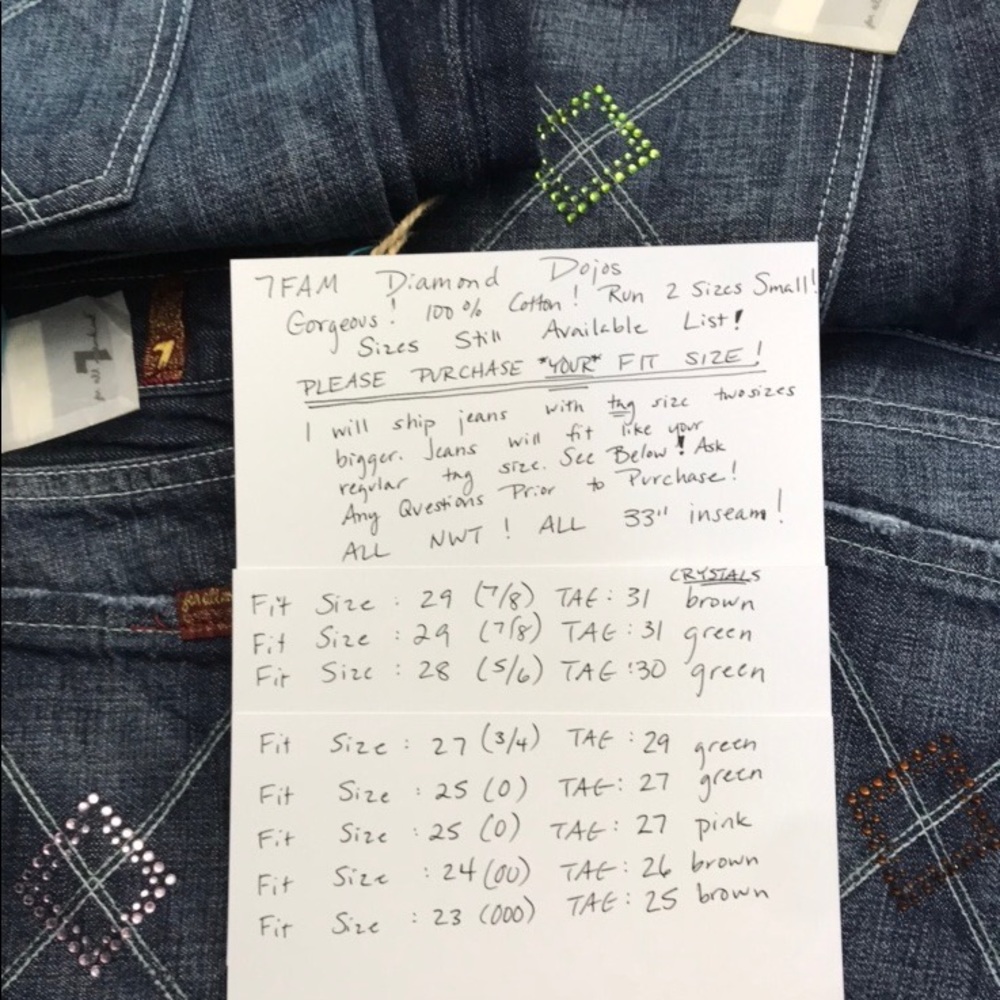 7FAM Diamond Dojos
Gorgeous! 100% Cotton! Run 2 Sizes Small!
Sizes Still Available List!
PLEASE PURCHASE *YOUR* FIT SIZE!
I will ship jeans with tag size two sizes
bigger. Jeans will fit like your
regular tag size. See Below! Ask
Any Questions Prior to Purchase!
ALL NWT! ALL 33" inseam!
CRYSTALS
Fit Size: 29 (7/8) TAG: 31 brown
Fit Size: 29 (7/8) TAG: 31 green
Fit Size: 28 (5/6) TAG: 30 green
Fit Size: 27 (3/4) TAG: 29 green
Fit Size: 25 (0) TAG: 27 green
Fit Size: 25 (0) TAG: 27 pink
Fit Size: 24 (00) TAG: 26 brown
Fit Size: 23 (000) TAG: 25 brown
7
7